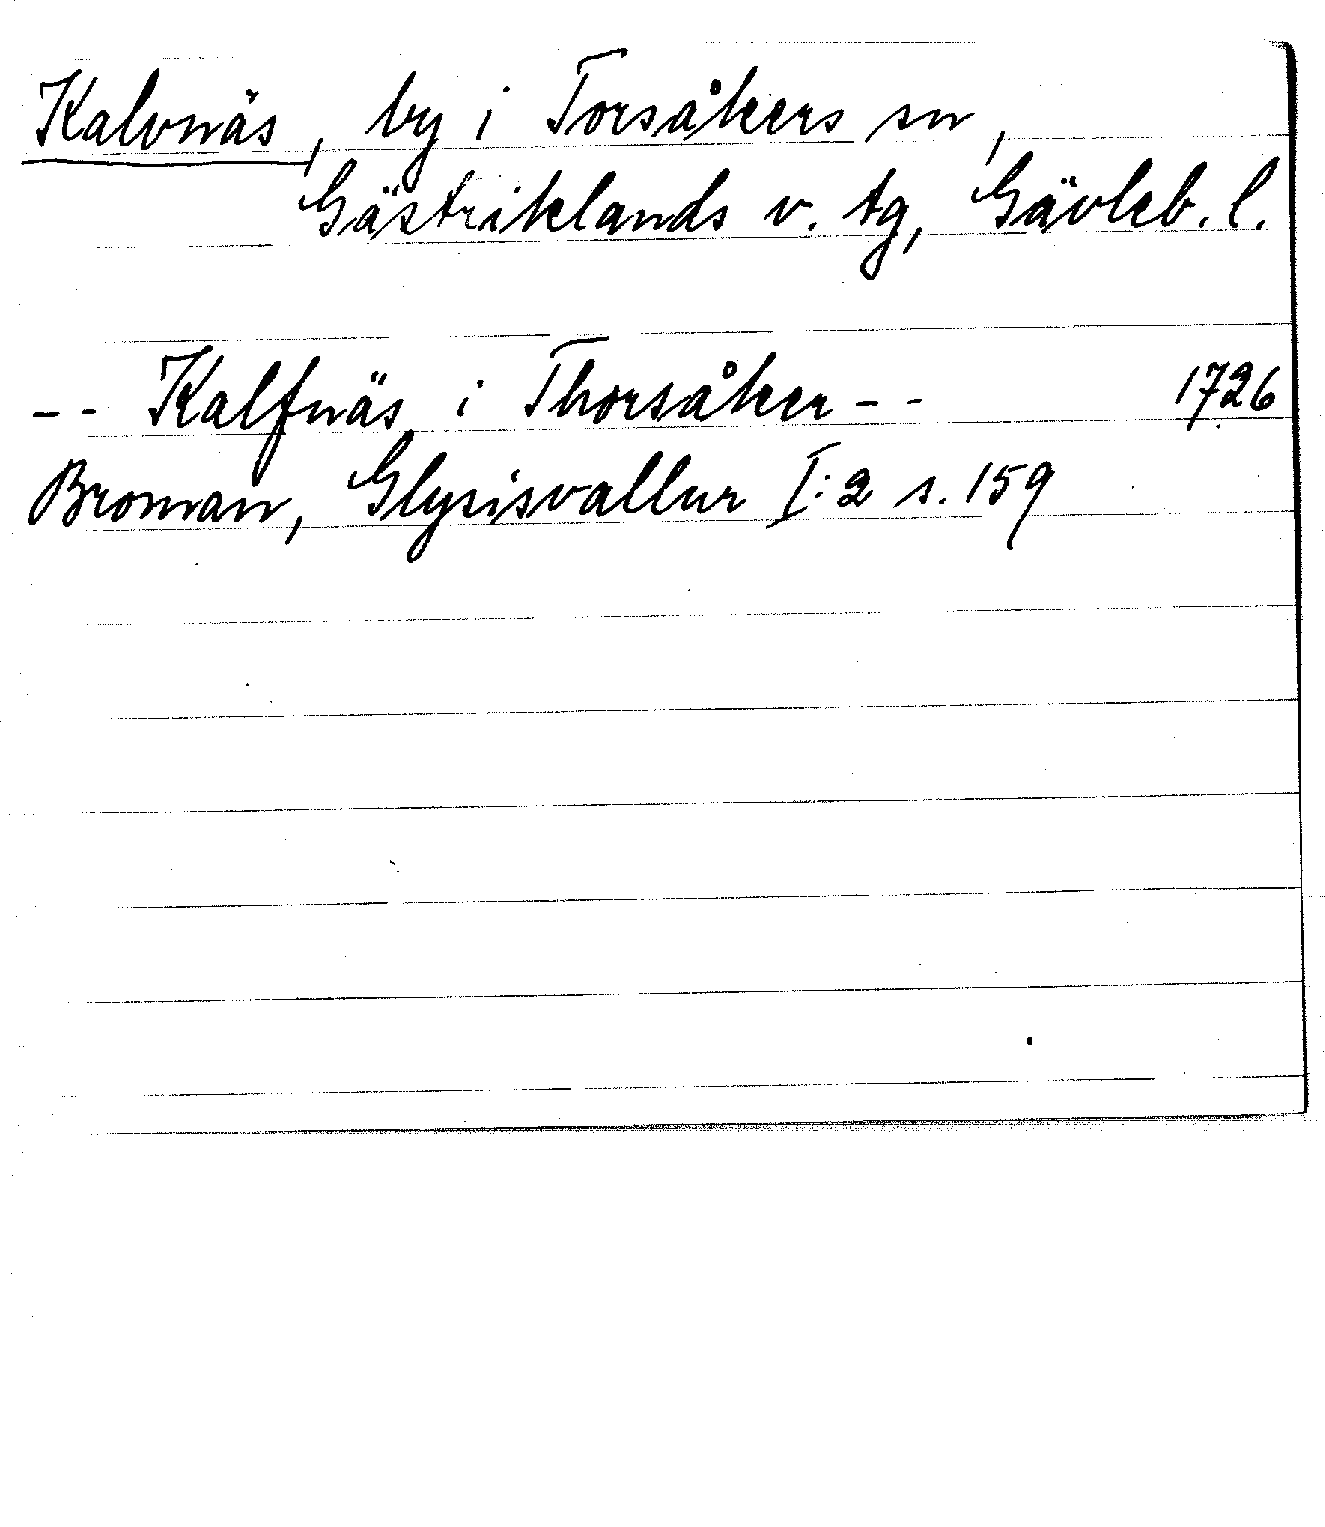 Kalvnäs, by i Torsåkers sn,
Gästriklands v. tg, Gävleb. l.
-- Kalfnäs i Thorsåker -- 1726
Broman, Glysisvallur I:2 s. 159